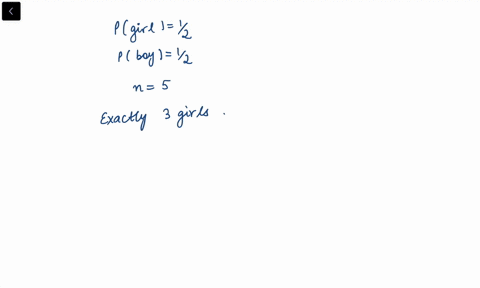 P(girl) = 1/2
P(boy) = 1/2
n = 5
Exactly 3 girls .